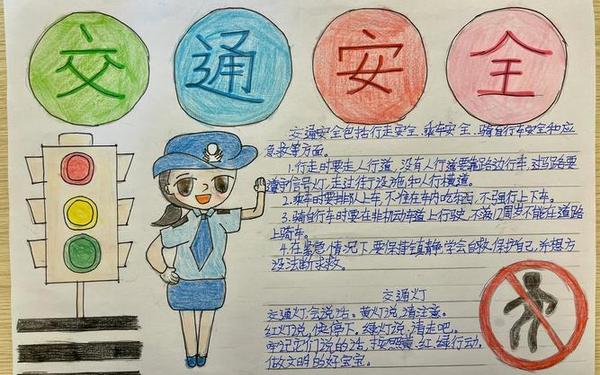 交通安全
交通安全包括行走安全、乘车安全、骑自行车安全和应
急求等方面。
1.行走时要走人行道，没有人行道要靠路边行走，过马路要
遵守信号灯，走过街设施和人行横道。
2.乘车时要排队上车，不准在车内吃东西，不强行上下车。
3.骑自行车时要在非机动车道上行驶，不满12周岁不能在道路
上骑车。
4.在紧急情况下要保持镇静，学会自救，保护自己，并想方
设法断求救。
交通灯
交通灯，会说话。黄灯说，请注意。
红灯说，快停下，绿灯说，请走吧。
牢记它们说的话，按照黄、红、绿行动，
做文明的好宝宝。